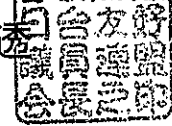 秀
日台友好
議員連盟
会長之印